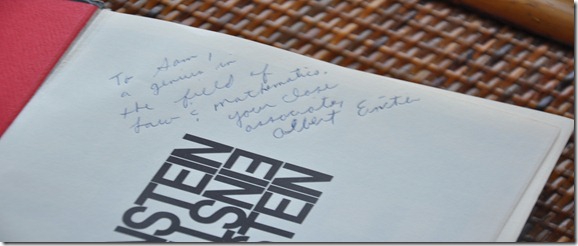 To Sam,
a genius in
the field of
Law & Mathematics.
your close
associate,
Albert Einstein
EINSTEIN
EINST
STEIN